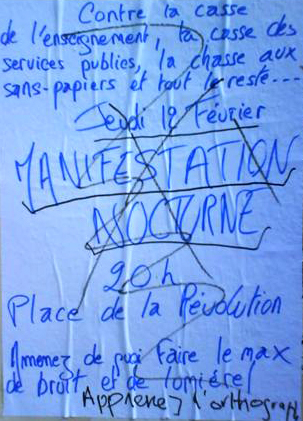 Contre la casse
de l'enseignement, la casse des
services publics, la chasse aux
sans-papiers et tout le reste...
Jeudi 12 Février
MANIFESTATION
NOCTURNE
20h
Place de la Révolution
Amenez de quoi faire le max
de bruit et de lomiére!
Apprenez l'orthograph